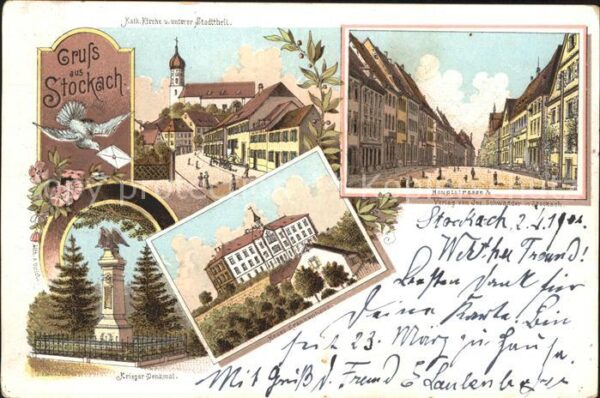 Kath. Kirche u. unterer Stadttheil.
Gruss
aus
Stockach.
Hauptstrasse
Verlag von Jos. Schwander Stockach
Krieger Denkmal.
Stockach, 2. 1901.
Werther Freund!
Besten Dank für
Deine Karte. Bin
seit 23. März zu Hause.
Mit Gruß d. Freund E